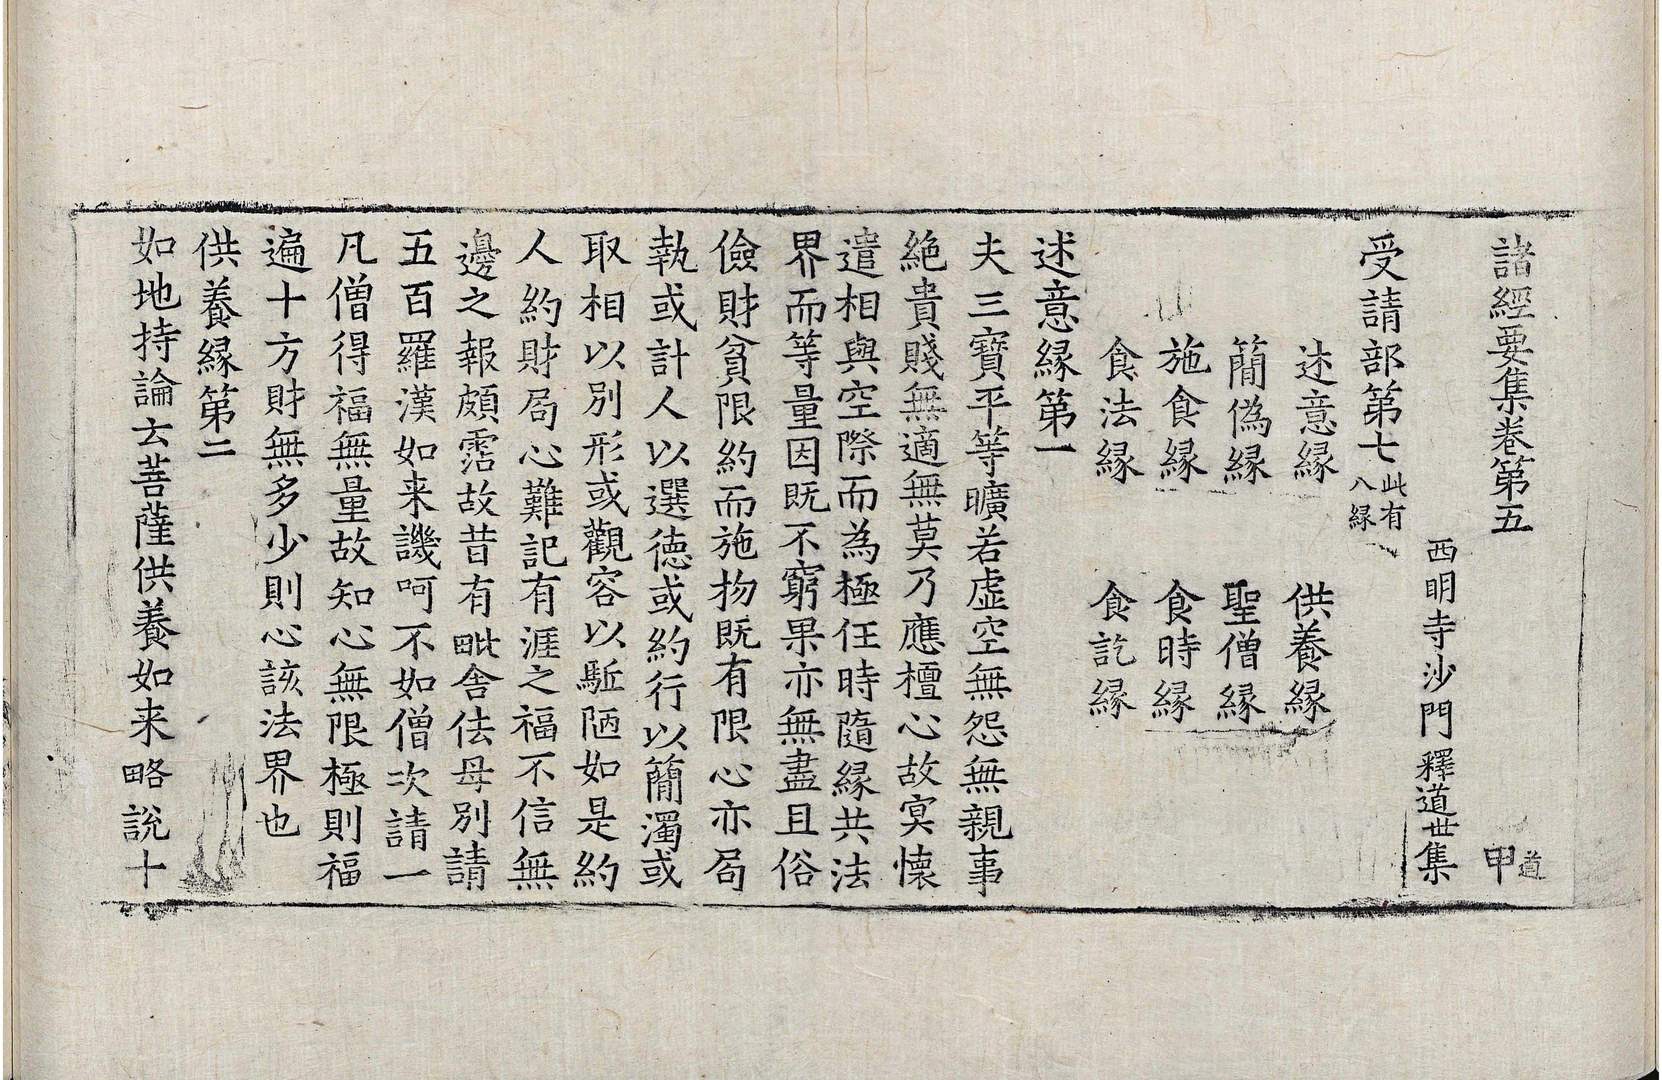 諸經要集卷第五 甲 道
西明寺沙門釋道世集
受請部第七 此有八緣
述意緣 供養緣
簡偽緣 聖僧緣
施食緣 食時緣
食法緣 食訖緣
述意緣第一
夫三寶平等曠若虛空無怨無親事
絕貴賤無適無莫乃應檀心故㝠懷
遣相與空際而為極任時隨緣共法
界而等量因既不窮果亦無盡且俗
儉財貧限約而施物既有限心亦局
執或計人以選德或約行以簡濁或
取相以別形或觀容以駈陋如是約
人約財局心難記有涯之福不信無
邊之報頗霑故昔有毗舍佉母別請
五百羅漢如来譏呵不如僧次請一
凡僧得福無量故知心無限極則福
遍十方財無多少則心該法界也
供養緣第二
如地持論云菩薩供養如来略說十